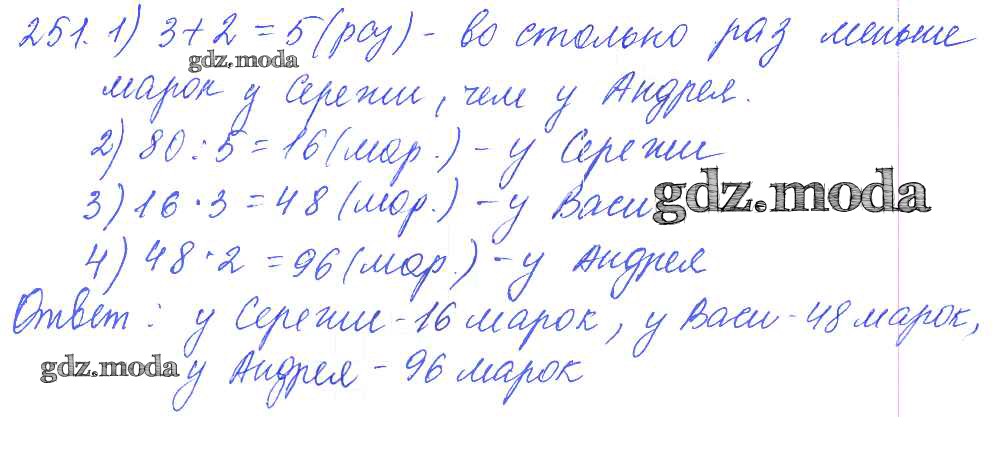 251. 1) 3+2=5 (раз) - во столько раз меньше
gdz.moda
марок у Сережи, чем у Андрея.
2) 80:5=16 (мар.) - у Сережи
3) 16·3=48 (мар.) - у Васи
gdz.moda
4) 48·2=96 (мар.) - у Андрея
Ответ: у Сережи - 16 марок, у Васи - 48 марок,
gdz.moda
у Андрея - 96 марок